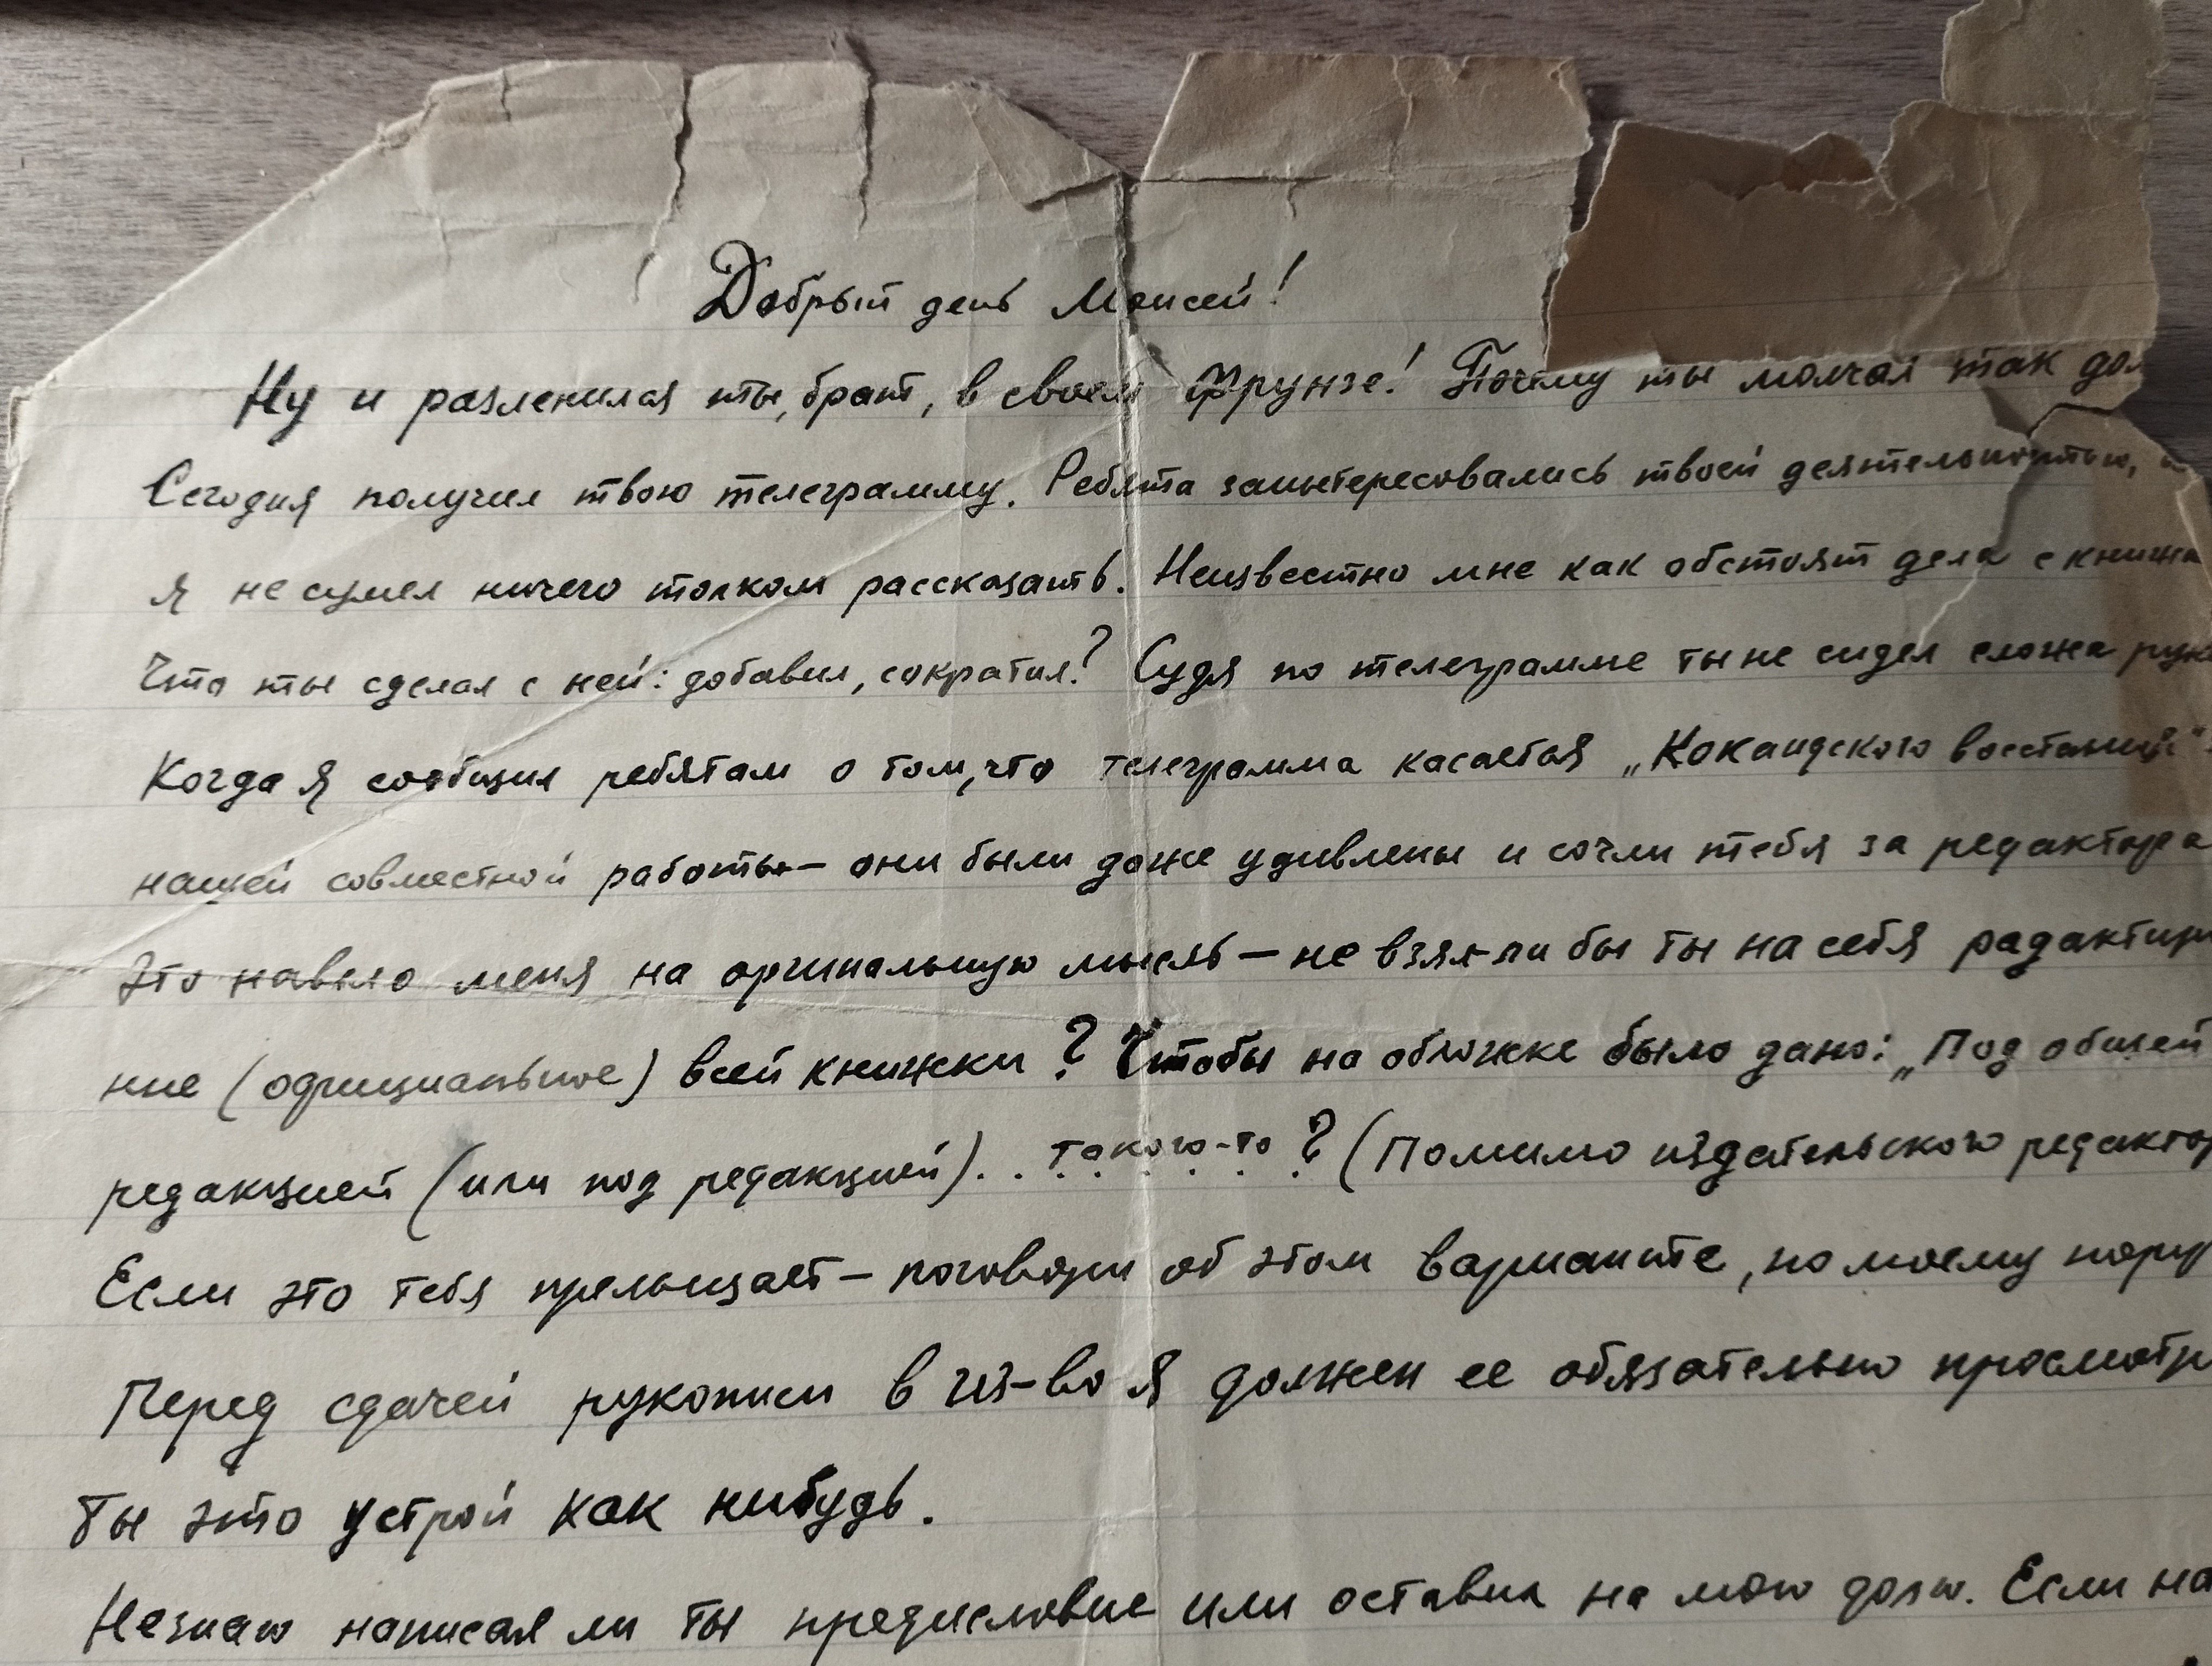 Добрый день Моисей!
Ну и разленился ты, брат, в своем Фрунзе! Почему ты молчал так дол
Сегодня получил твою телеграмму. Ребята заинтересовались твоей деятельностью,
я не сумел ничего толком рассказать. Неизвестно мне как обстоят дела с книжк
Что ты сделал с ней: добавил, сократил? Судя по телеграмме ты не сидел сложа рук
Когда я сообщил ребятам о том, что телеграмма касается „Кокандского восстания"
нашей совместной работы — они были даже удивлены и сочли тебя за редактора
Это навело меня на оригинальную мысль — не взял-ли бы ты на себя радактир
ние (официальное) всей книжки? Чтобы на обложке было дано: „Под общей
редакцией (или под редакцией). . такого-то ? (Помимо издательского редактор
Если это тебя прельщает — поговори об этом варианте, по моему пору
Перед сдачей рукописи в из-во я должен ее обязательно просмотр
Ты это устрой как нибудь.
Незнаю написал ли ты предисловие или оставил на мою долю. Если на